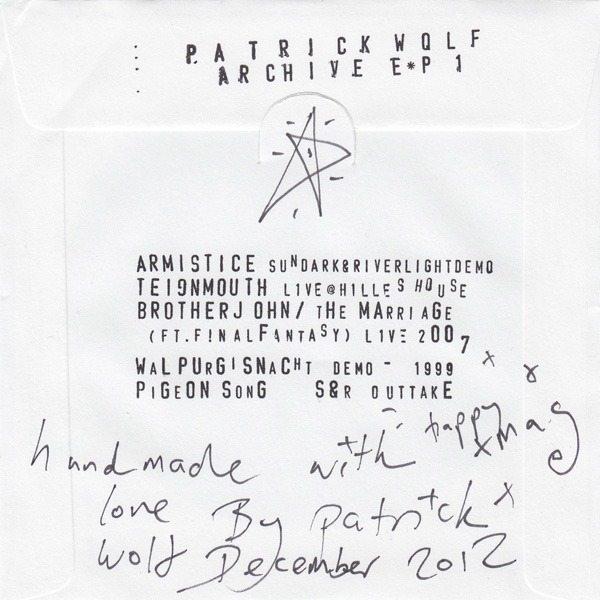 PATRICK WOLF
ARCHIVE E*P 1
ARMISTICE SUNDARK&RIVERLIGHTDEMO
TEIGNMOUTH L1VE@H1LLES HOUSE
BROTHERJOHN/ THE MARRIAGE
(FT.F!NALFANTASY) L1VE 2007
WALPURG!SNACHT DEMO - 1999
PIGEON SONG S&R OUTTAKE
happy xmas
handmade with
love By patrick x
wolf December 2012